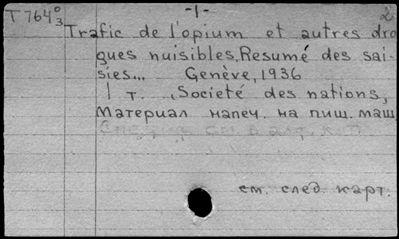 T 764⁰₃ -1- 2
Trafic de l'opium et autres dro
gues nuisibles. Resumé des sai-
sies... Genève, 1936
1 т. , Societé des nations,
Материал напеч. на пиш. маш
см. след. карт.